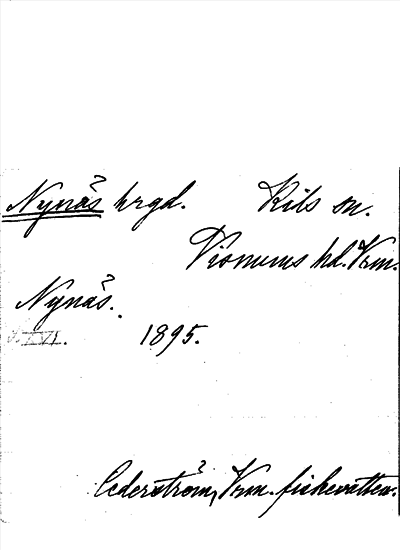 Nynäs hrgd. Kils sn.
Visnums hd. Vrm.
Nynäs.
XVI. 1895.
Cederström, Vrm. fiskevatten.